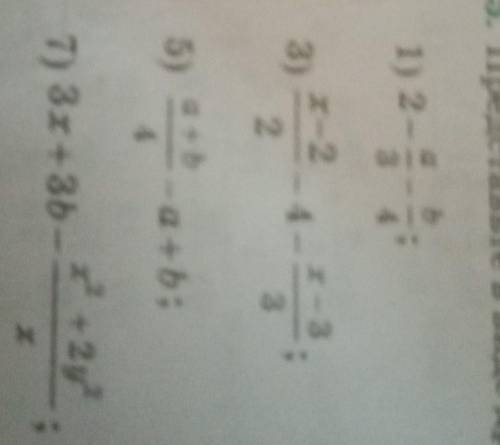 5. Представьте в виде
1) 2 - a/3 - b/4;
3) (x-2)/2 - 4 - (x-3)/3;
5) (a+b)/4 - a + b;
7) 3x + 3b - (x² + 2y²)/x;